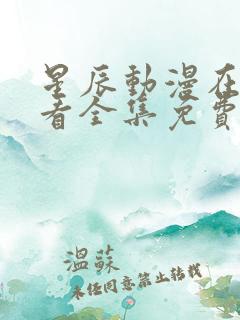 星辰動漫在
看全集免費
溫蘇
未经同意禁止转载